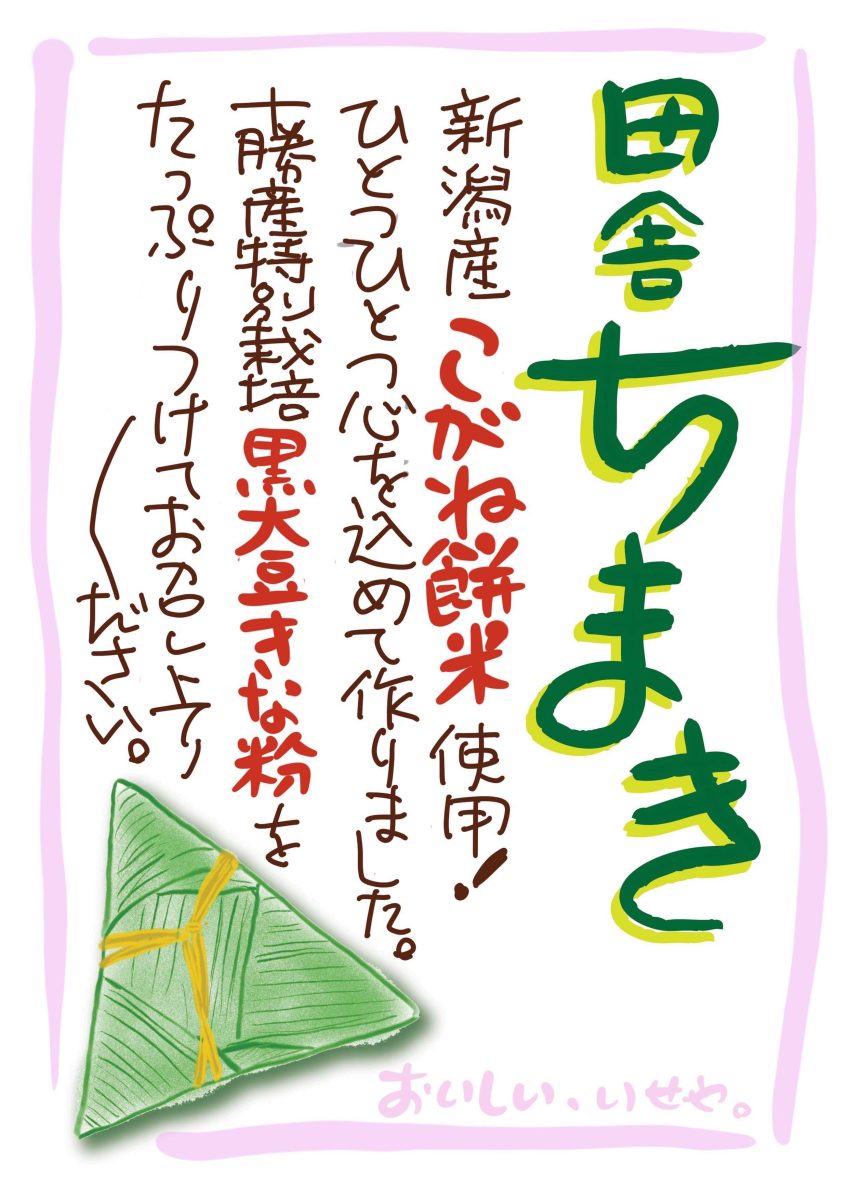 田舎ちまき
新潟産こがね餅米使用!
ひとつひとつ心を込めて作りました。
十勝産特別栽培黒大豆きな粉を
たっぷりつけてお召し上り
ださい。
おいしい、いせや。